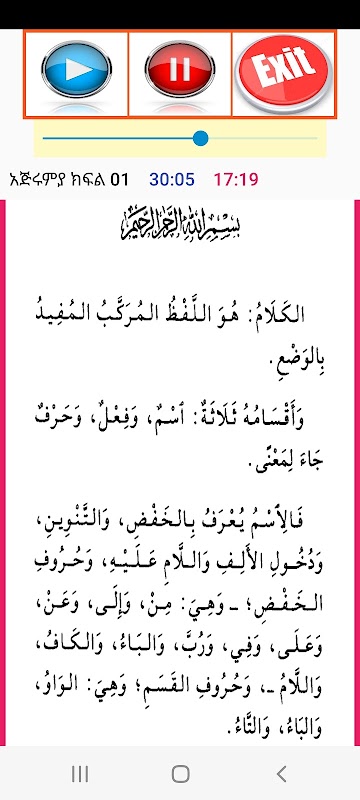 Exit
አጅሩምያ ክፍል 01 30:05 17:19
بِسْمِ اللَّهِ الرَّحْمَنِ الرَّحِيمِ
الكَلَامُ: هُوَ اللَّفْظُ المُرَكَّبُ المُفِيدُ
بِالوَضْعِ.
وَأَقْسَامُهُ ثَلَاثَةٌ: ٱسْمٌ، وَفِعْلٌ، وَحَرْفٌ
جَاءَ لِمَعْنًى.
فَالِٱسْمُ يُعْرَفُ بِالخَفْضِ، وَالتَّنْوِينِ،
وَدُخُولِ الأَلِفِ وَاللَّامِ عَلَيْهِ، وَحُرُوفِ
الخَفْضِ؛ ـ وَهِيَ: مِنْ، وَإِلَى، وَعَنْ،
وَعَلَى، وَفِي، وَرُبَّ، وَالبَاءُ، وَالكَافُ،
وَاللَّامُ ـ، وَحُرُوفِ القَسَمِ؛ وَهِيَ: الوَاوُ،
وَالبَاءُ، وَالتَّاءُ.